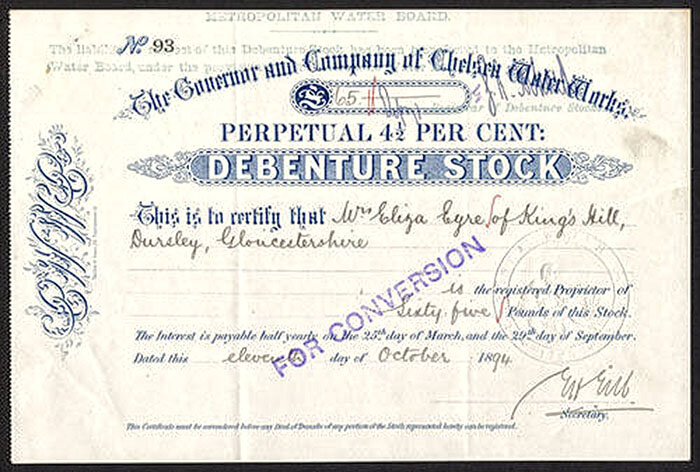 METROPOLITAN WATER BOARD.
No 93
The liability in respect of this Debenture Stock has been to the Metropolitan
Water Board, under the
The Governor and Company of Chelsea Water Works.
£ 65
Registrar of Debenture Stocks
PERPETUAL 4½ PER CENT:
DEBENTURE STOCK
This is to certify that Mrs Eliza Eyre of King's Hill,
Dursley, Gloucestershire
is the registered Proprietor of
Sixty five Pounds of this Stock.
FOR CONVERSION
The Interest is payable half yearly on the 25th day of March, and the 29th day of September.
Dated this eleventh day of October 1894
Secretary.
This Certificate must be surrendered before any Deed of Transfer of any portion of the Stock represented hereby can be registered.